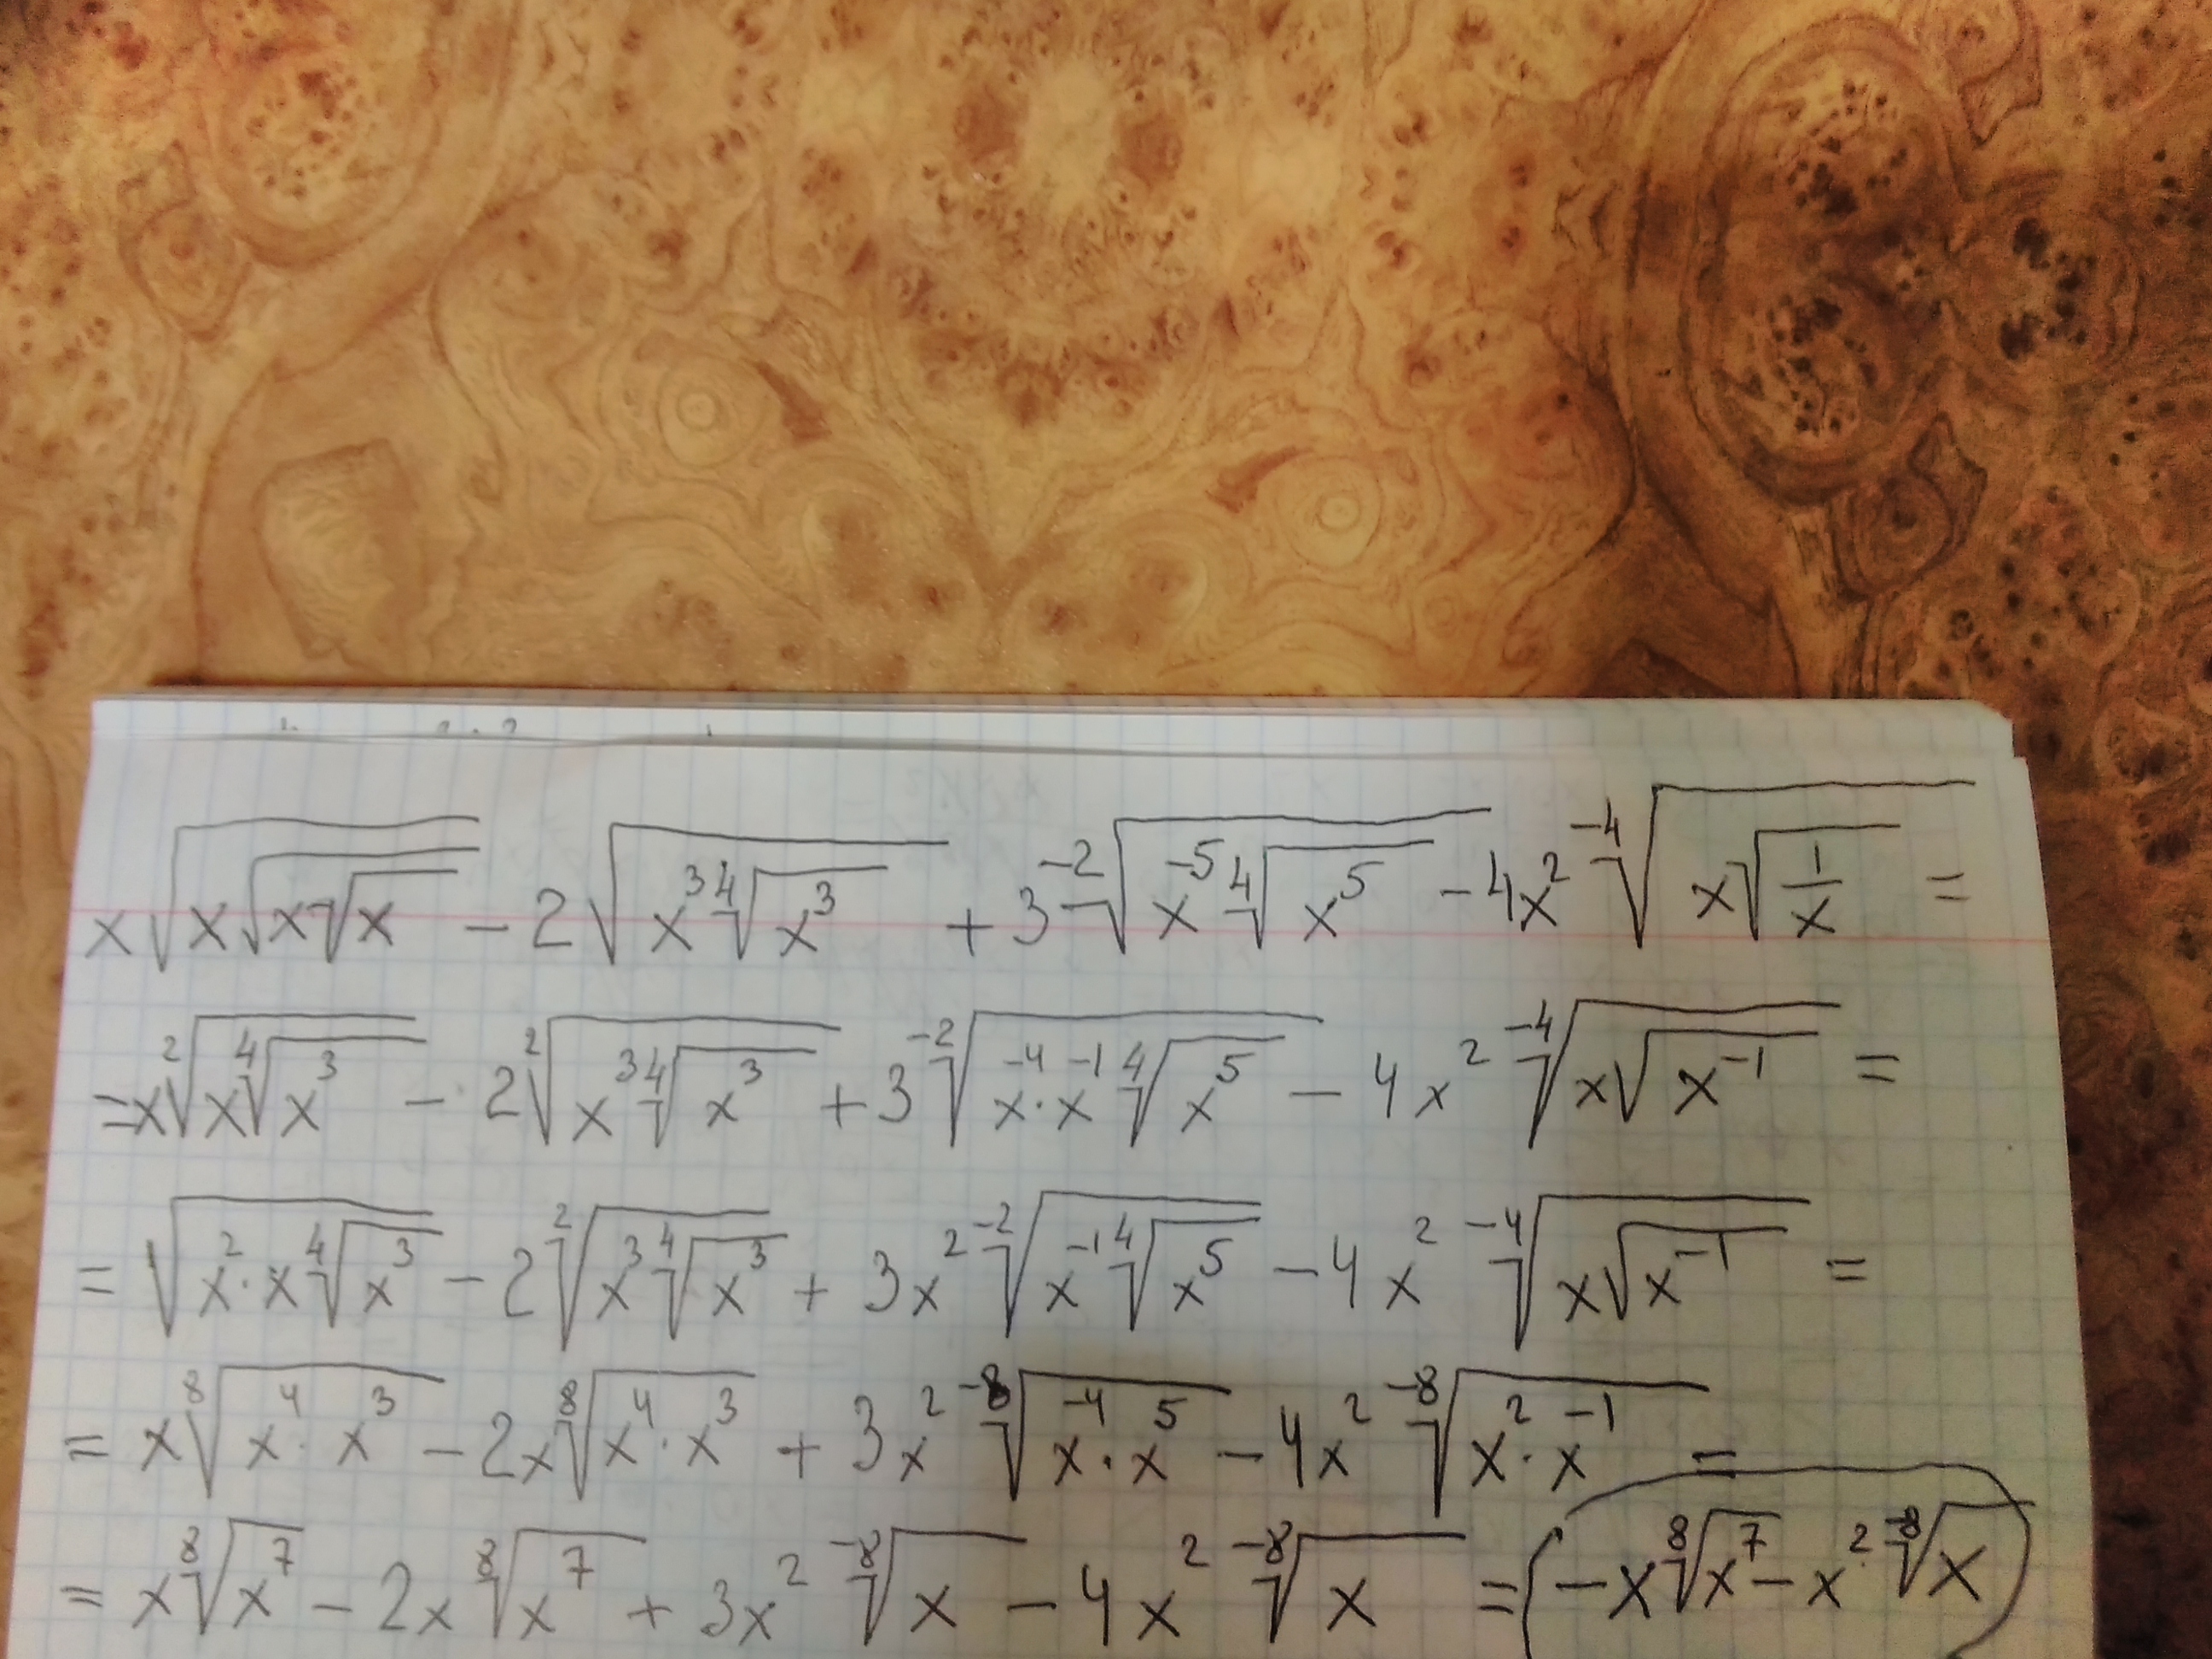 x√(x√(x√x)) - 2√(x³ ⁴√(x³)) + 3 ⁻²√(x⁻⁵ ⁴√(x⁵)) - 4x² ⁻⁴√(x√(1/x)) =
= x ²√(x ⁴√(x³)) - 2 ²√(x³ ⁴√(x³)) + 3 ⁻²√(x⁻⁴·x⁻¹ ⁴√(x⁵)) - 4x² ⁻⁴√(x√(x⁻¹)) =
= √(x²·x ⁴√(x³)) - 2 ²√(x³ ⁴√(x³)) + 3x² ⁻²√(x⁻¹ ⁴√(x⁵)) - 4x² ⁻⁴√(x√(x⁻¹)) =
= x ⁸√(x⁴·x³) - 2x ⁸√(x⁴·x³) + 3x² ⁻⁸√(x⁻⁴·x⁵) - 4x² ⁻⁸√(x²·x⁻¹) =
= x ⁸√(x⁷) - 2x ⁸√(x⁷) + 3x² ⁻⁸√(x) - 4x² ⁻⁸√(x) = -x ⁸√(x⁷) - x² ⁻⁸√(x)